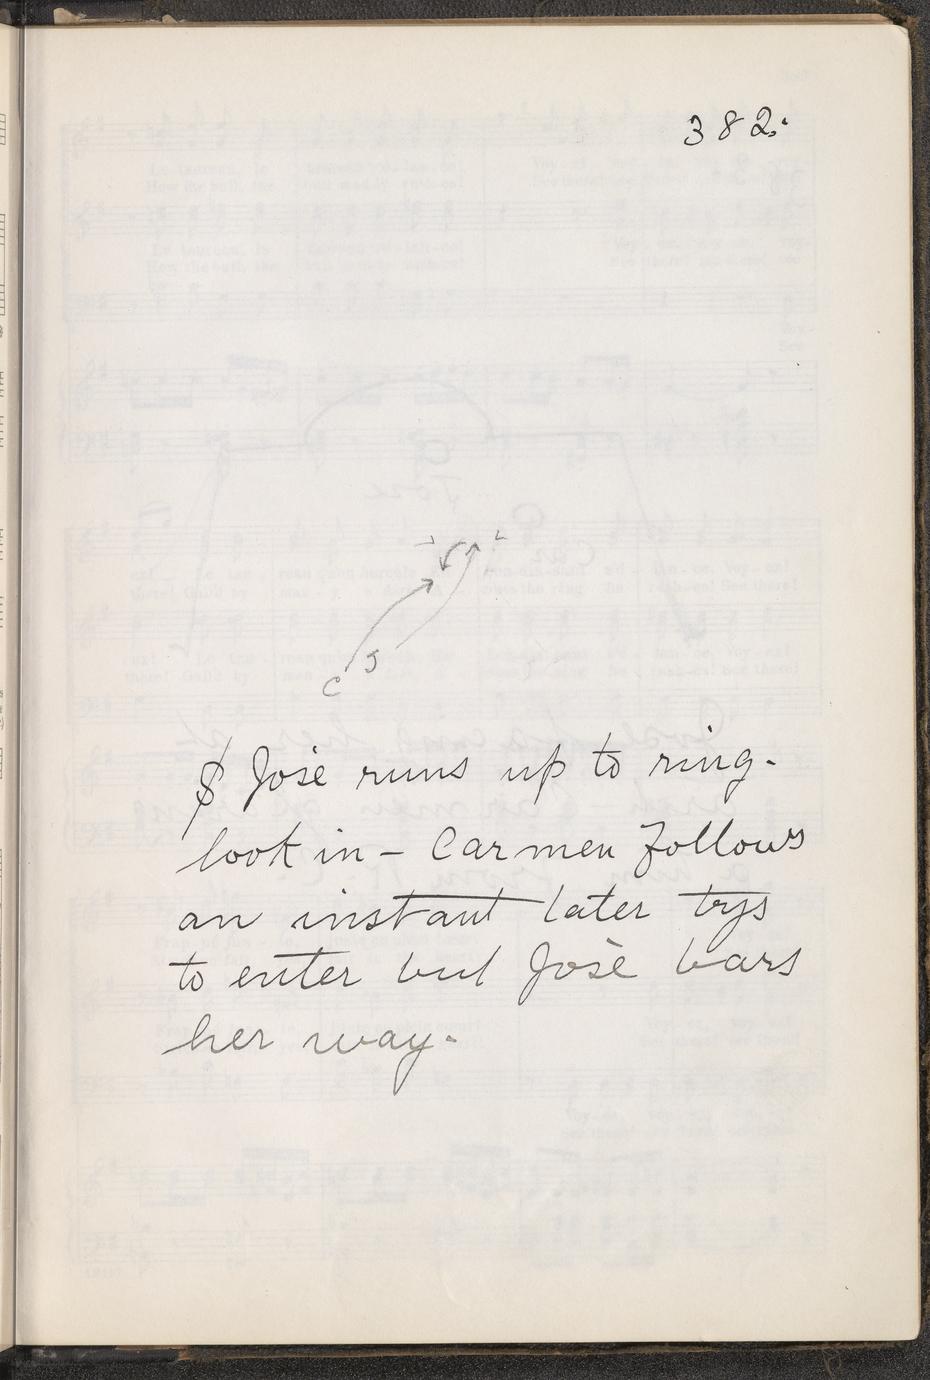 382.
C J
$ José runs up to ring.
look in - Carmen follows
an instant later trys
to enter but José bars
her way.